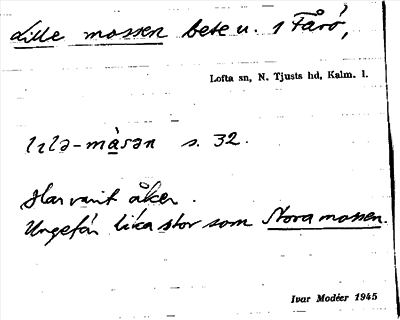 Lille mossen bete u. 1 Fårö,
Lofta sn, N. Tjusts hd, Kalm. l.
lılə-måsən s. 32.
Har varit åker.
Ungefär lika stor som Stora mossen.
Ivar Modéer 1945